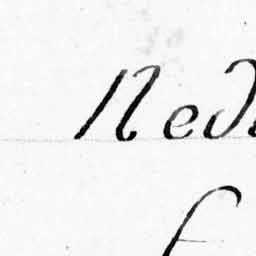 Ned
f